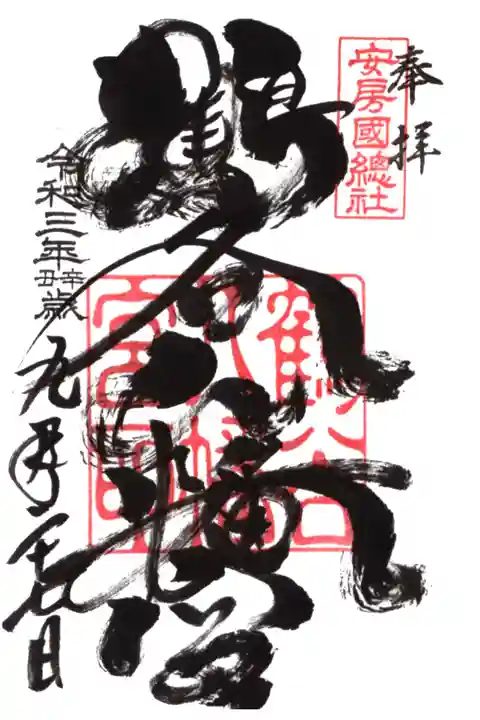 奉拝
安房國總社
鶴谷八幡宮
鶴谷八幡宮印
令和三年辛丑歳九月二十七日